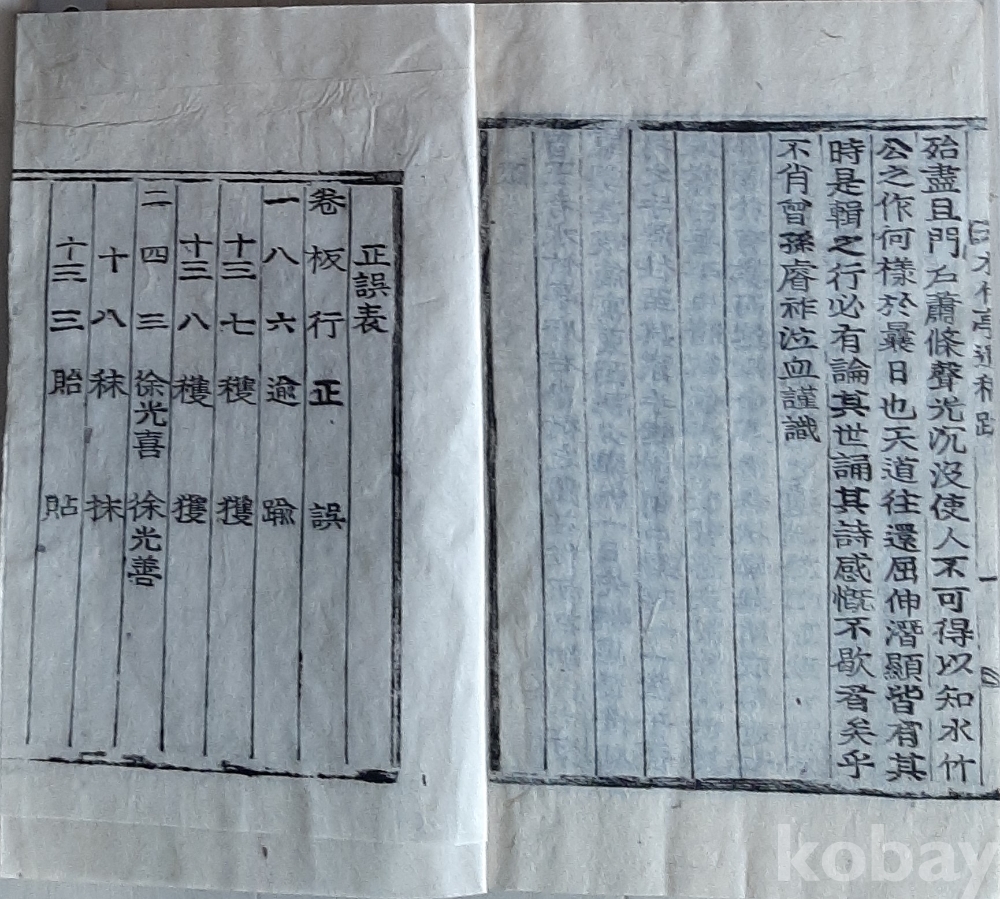 水竹亭遺稿跋 一
殆盡且門戶蕭條聲光沉沒使人不可得以知水竹
公之作何樣於曩日也天道往還屈伸潛顯皆有其
時是輯之行必有論其世誦其詩感慨不歇者矣乎
不肖曾孫睿祚泣血謹識
正誤表
卷 板 行 正 誤
一 八 六 逾 踰
十三 七 穫 獲
十三 八 穫 獲
二 四 三 徐光喜 徐光善
十 八 秣 抹
十三 三 貽 貼
kobay